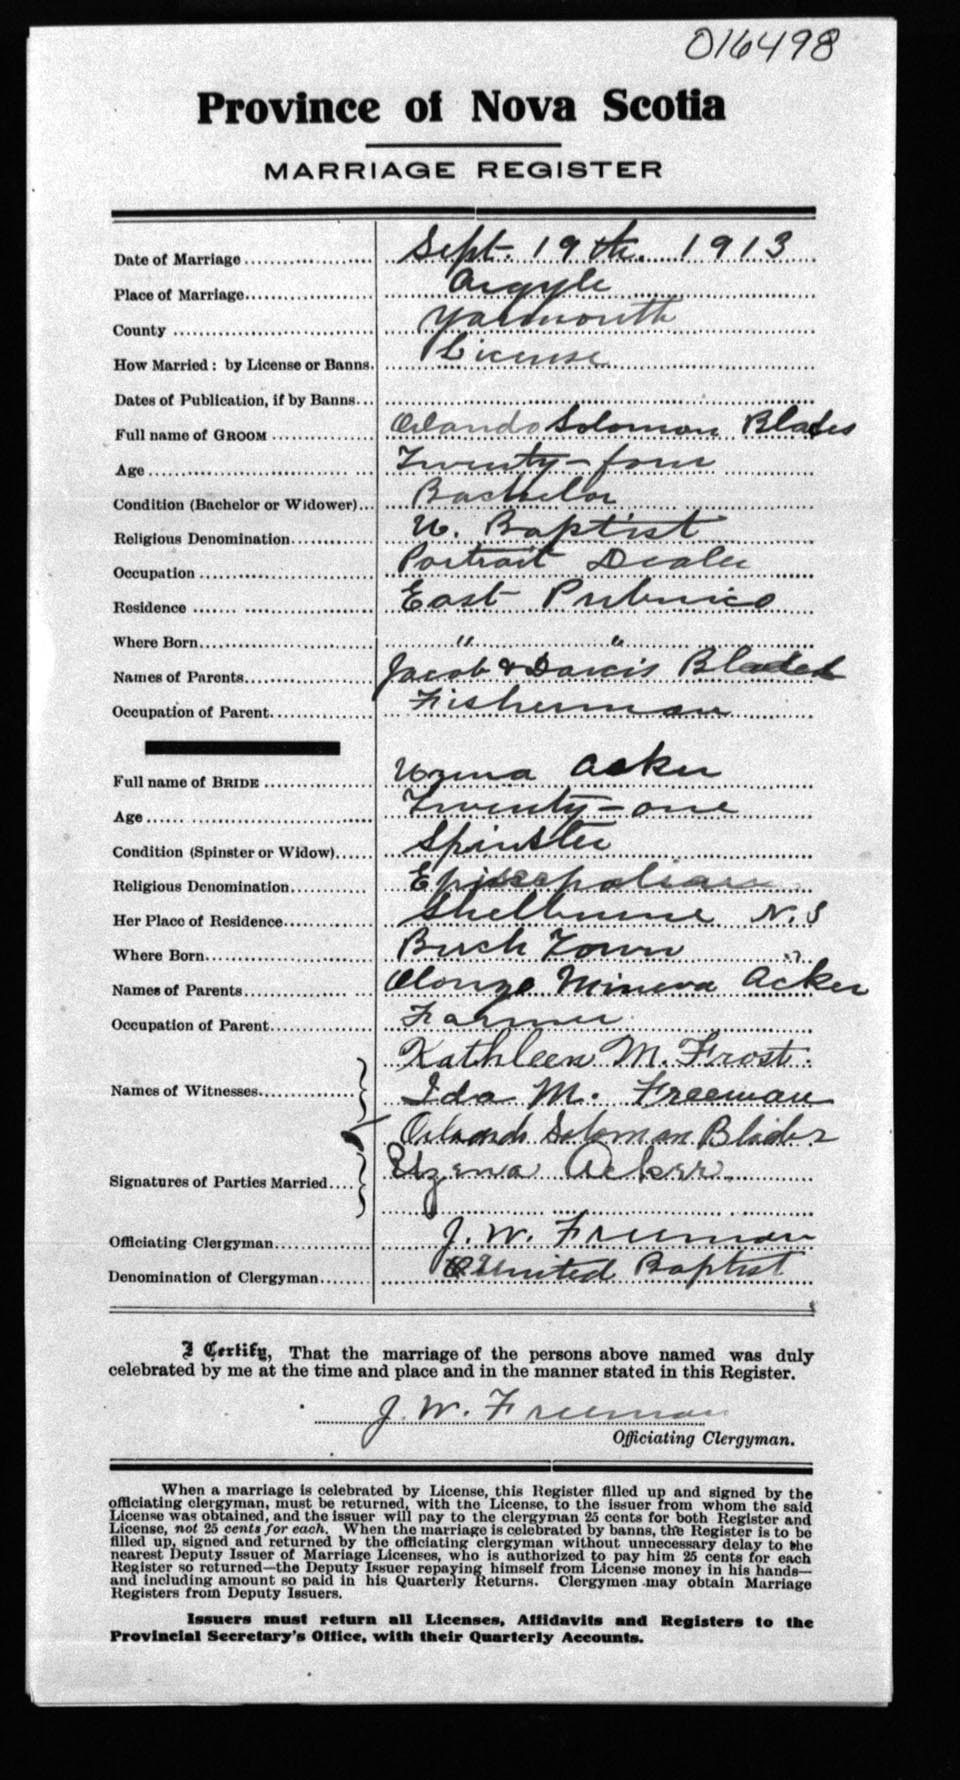 016498
Province of Nova Scotia
MARRIAGE REGISTER
Date of Marriage Sept. 19th. 1913
Place of Marriage Argyle
County Yarmouth
How Married: by License or Banns. License
Dates of Publication, if by Banns...
Full name of GROOM Orlando Solomon Blades
Age Twenty-four
Condition (Bachelor or Widower)... Bachelor
Religious Denomination U. Baptist
Occupation Portrait Dealer
Residence East Pubnico
Where Born " "
Names of Parents Jacob & Darcis Blades
Occupation of Parent Fisherman
Full name of BRIDE Uzena Acker
Age Twenty-one
Condition (Spinster or Widow) Spinster
Religious Denomination Episcopalian
Her Place of Residence Shelburne N.S
Where Born Birch Town "
Names of Parents Alonzo Minerva Acker
Occupation of Parent Farmer
Kathleen M. Frost.
Names of Witnesses Ida M. Freeman
Orlando Soloman Blades
Signatures of Parties Married Uzena Acker
Officiating Clergyman J. W. Freeman
Denomination of Clergyman United Baptist
I Certify, That the marriage of the persons above named was duly
celebrated by me at the time and place and in the manner stated in this Register.
J. W. Freeman
Officiating Clergyman.
When a marriage is celebrated by License, this Register filled up and signed by the
officiating clergyman, must be returned, with the License, to the issuer from whom the said
License was obtained, and the issuer will pay to the clergyman 25 cents for both Register and
License, not 25 cents for each. When the marriage is celebrated by banns, the Register is to be
filled up, signed and returned by the officiating clergyman without unnecessary delay to the
nearest Deputy Issuer of Marriage Licenses, who is authorized to pay him 25 cents for each
Register so returned—the Deputy Issuer repaying himself from License money in his hands—
and including amount so paid in his Quarterly Returns. Clergymen may obtain Marriage
Registers from Deputy Issuers.
Issuers must return all Licenses, Affidavits and Registers to the
Provincial Secretary's Office, with their Quarterly Accounts.